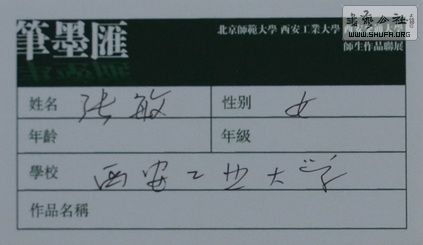 筆墨匯
北京師範大學 西安工業大學
師生作品聯展
WWW.SHUFA.ORG
姓名 张敏 性别 女
年齡 年級
學校 西安工业大学
作品名稱